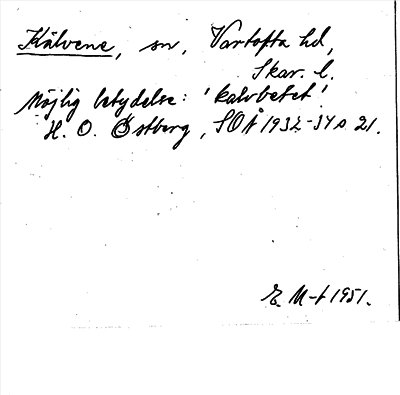 Kälvene, sn, Vartofta hd,
Skar. l.
Möjlig betydelse: 'kalvbetet'
H. O. Östberg, SOÅ 1932-34 s. 21.
E. M-t 1951.